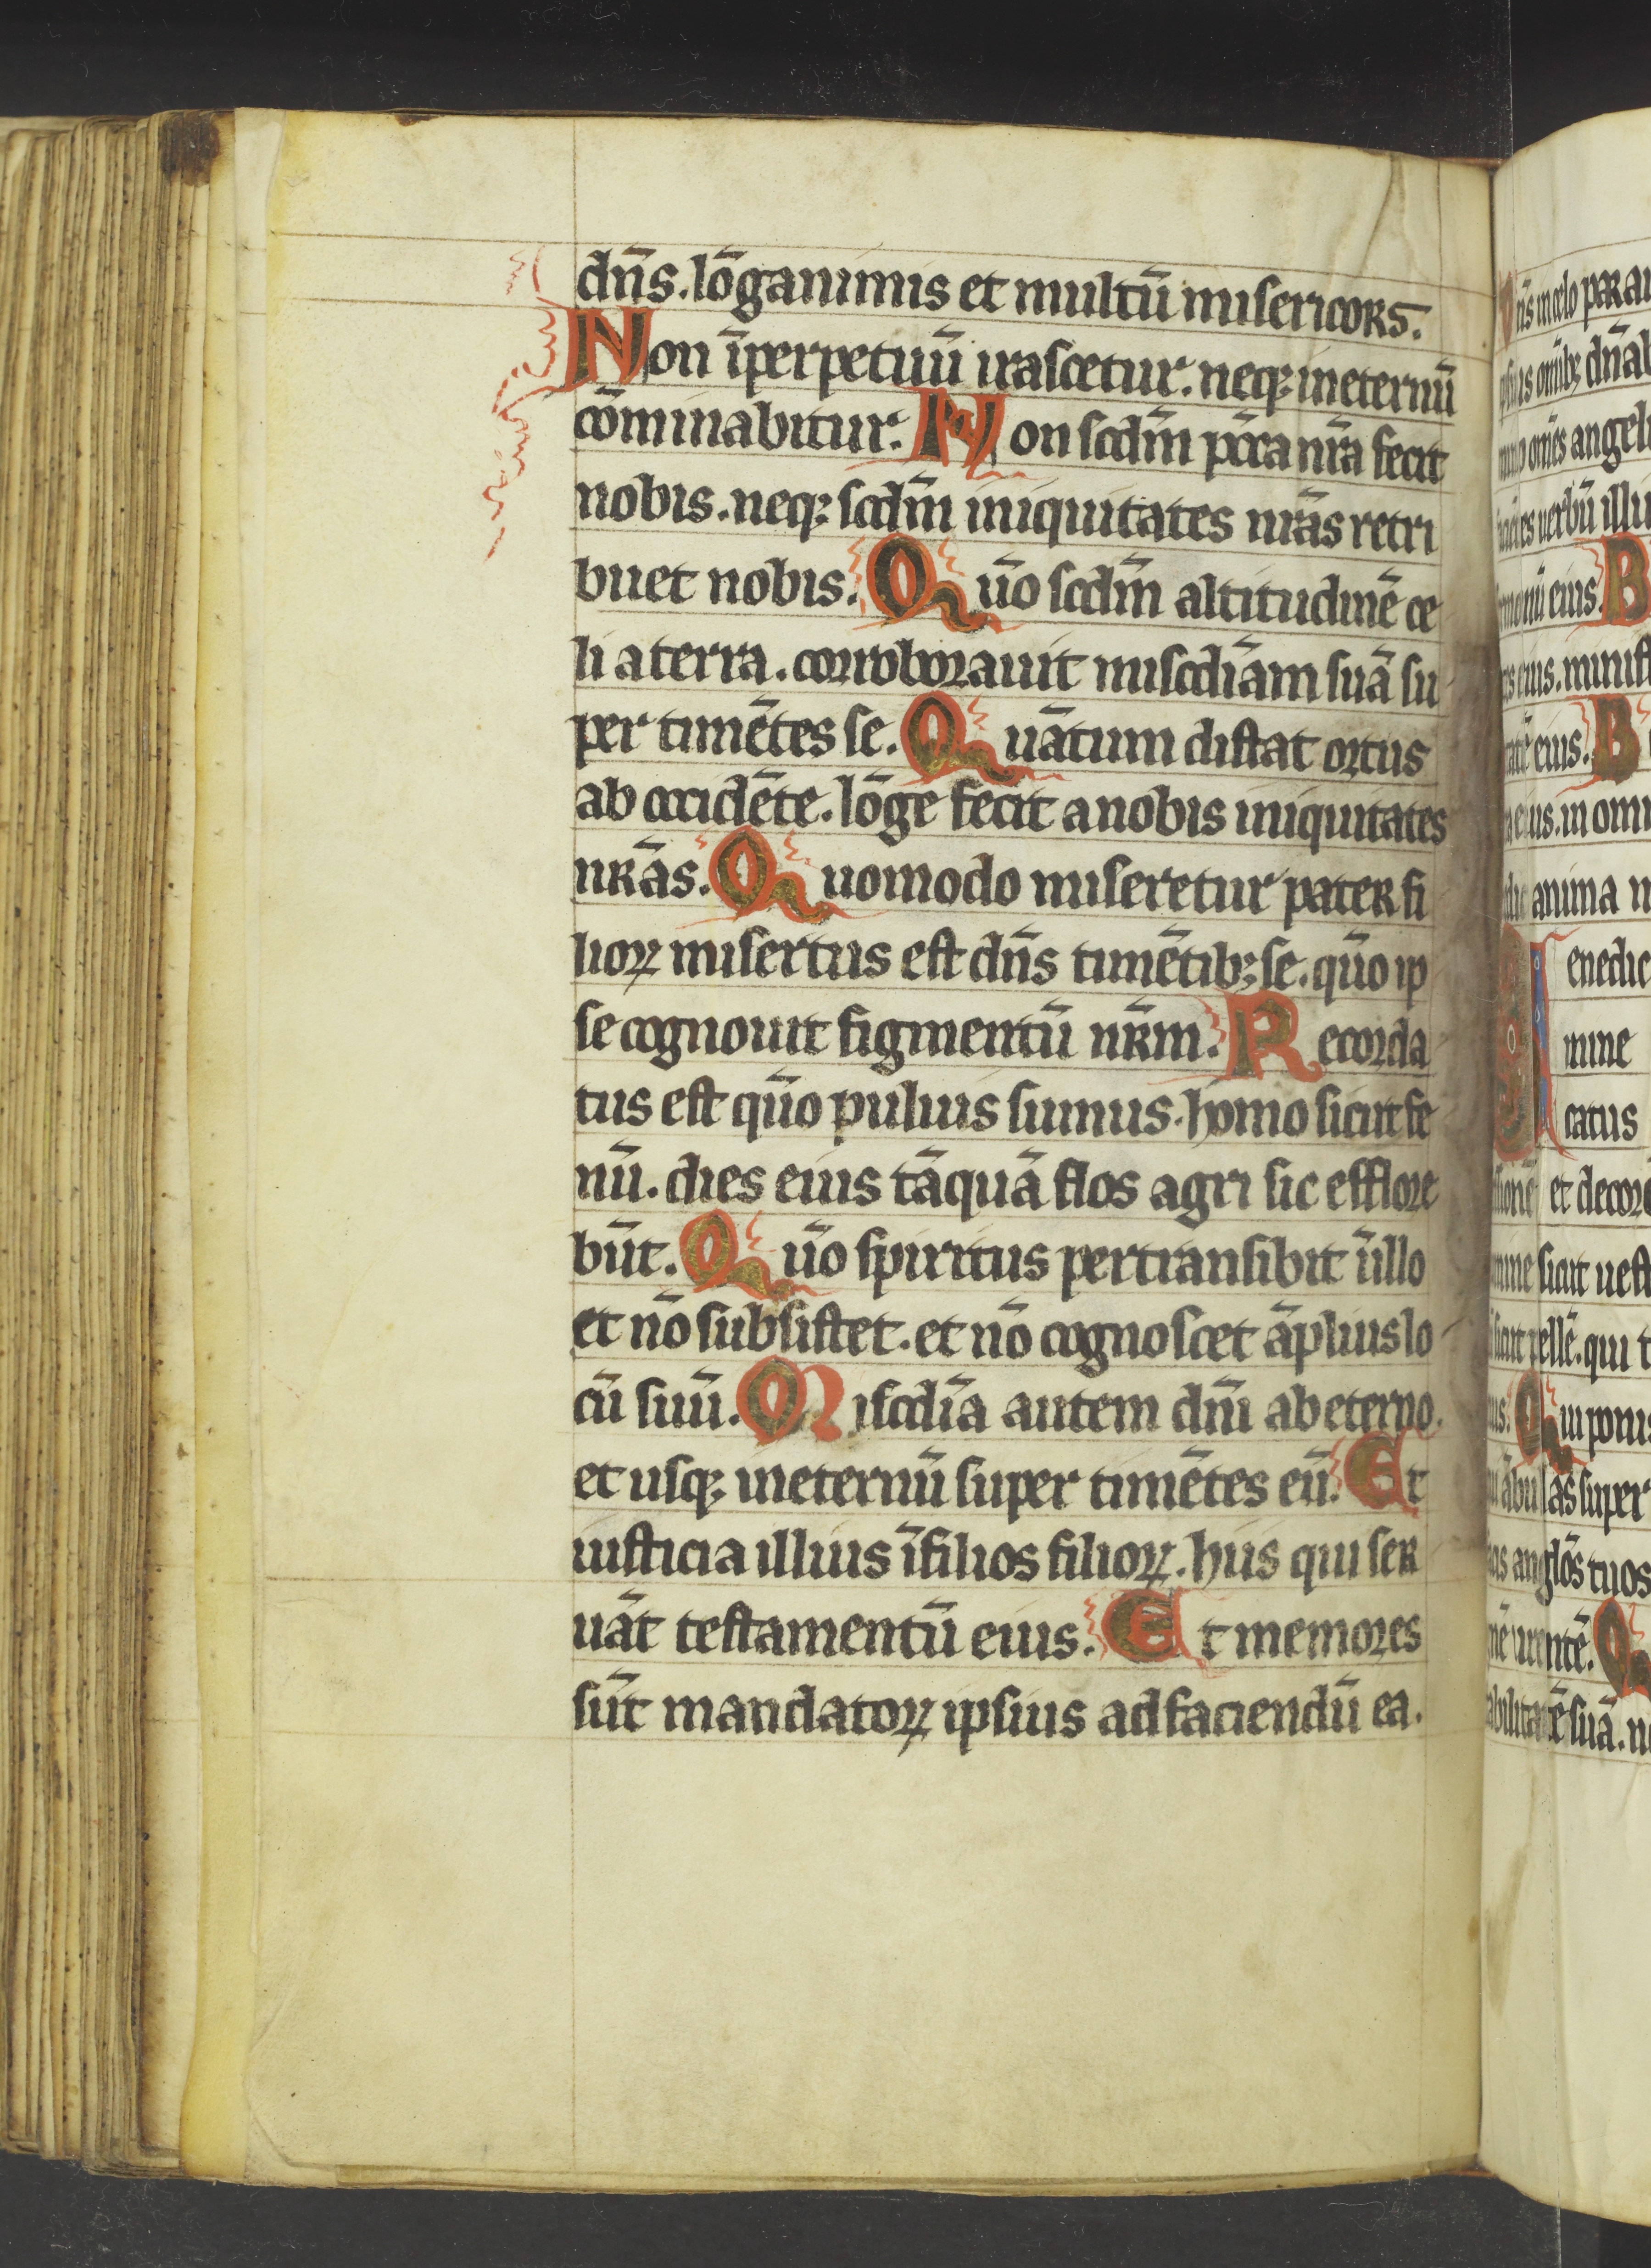 dn̄s. lōganimis et multū misericors.
Non īperpetuū irascetur. neq; ineternū
cōminabitur. Non scdm̄ pc̄ca nr̄a fecit
nobis. neq; scdm̄ iniquitates nr̄as retri
buet nobis. Quō scdm̄ altitudinē ce
li a terra. corroborauit miscdīam suā su
per timētes se. Quātum distat ortus
ab occidēte. lōge fecit anobis iniquitates
nr̄as. Quomodo miseretur pater fi
lioꝝ misertus est dn̄s timētib; se. quō ip
se cognouit figmentū nr̄m. Recorda
tus est quō puluis sumus. homo sicut fe
nū. dies eius tāquā flos agri sic efflore
būt. Quō spiritus pertransibit ī illo
et nō subsistet. et nō cognoscet āplius lo
cū suū. Miscdīa autem dn̄i ab eterno.
et usq; ineternū super timētes eū. Et
iusticia illius ī filios filioꝝ. hiis qui ser
uāt testamentū eius. Et memores
sūt mandatoꝝ ipsius ad faciendū ea.
angeli
uerbū illi
eius. B
eius. minist
eius. B
eius. in omni
anima
enedic
mine
catus
et decorē
sicut uest
pellē. qui t
Qui ponis
super
anglōs tuos
Q
suā.